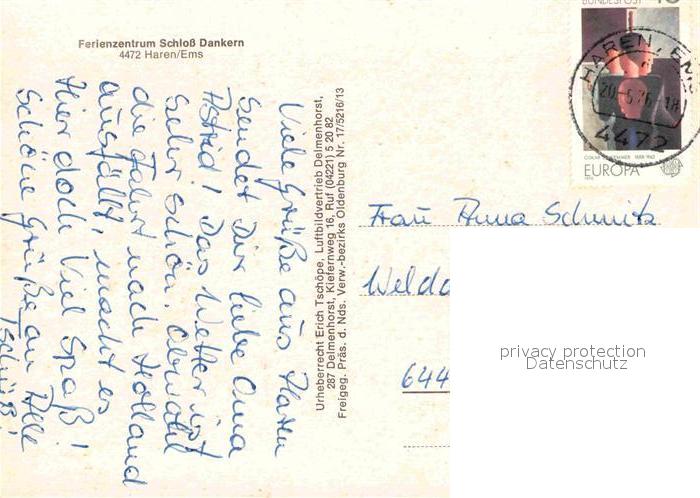 Ferienzentrum Schloß Dankern
4472 Haren/Ems
Viele Grüße aus Haren
sendet Dir liebe Oma
Astrid! Das Wetter ist
sehr schön. Obwohl
die Fahrt nach Holland
ausfällt, macht es
hier doch viel Spaß!
Schöne Grüße an Alle
Tschüß!
Urheberrecht Erich Tschöpe, Luftbildvertrieb Delmenhorst,
287 Delmenhorst, Kiefernweg 16, Ruf (04221) 5 20 82
Freigeg. Präs. d. Nds. Verw.-bezirks Oldenburg Nr. 17/5216/13
DEUTSCHE BUNDESPOST
HAREN, EMS
20.-5.76-18
4472
OSKAR SCHLEMMER 1888-1943
EUROPA
Frau Anna Schmitz
644
privacy protection
Datenschutz